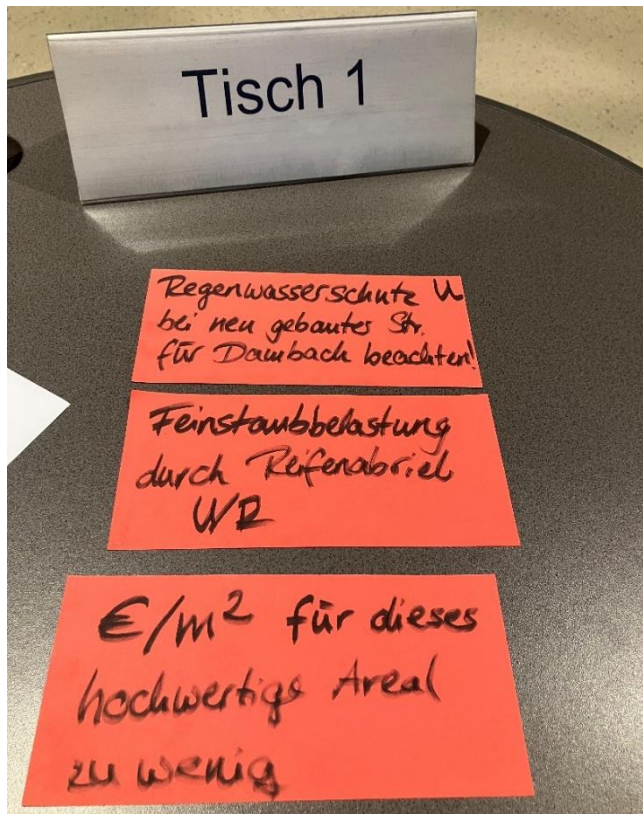 Tisch 1
Regenwasserschutz U
bei neu gebauter Str.
für Dambach beachten!
Feinstaubbelastung
durch Reifenabrieb
WR
€/m² für dieses
hochwertige Areal
zu wenig